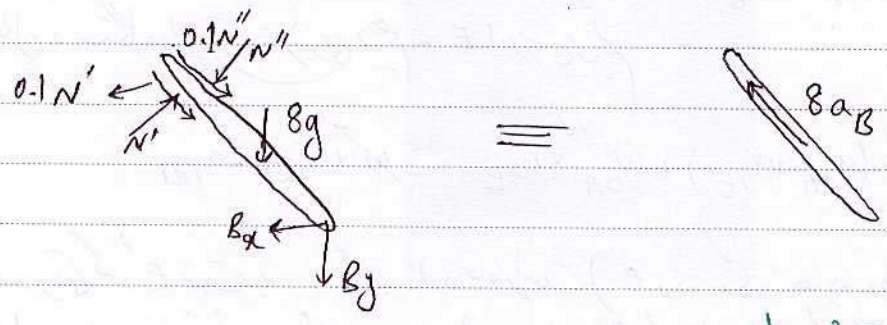 0.1N"
N"
0.1N'
N'
8g
≡
8a_B
B_x
B_y